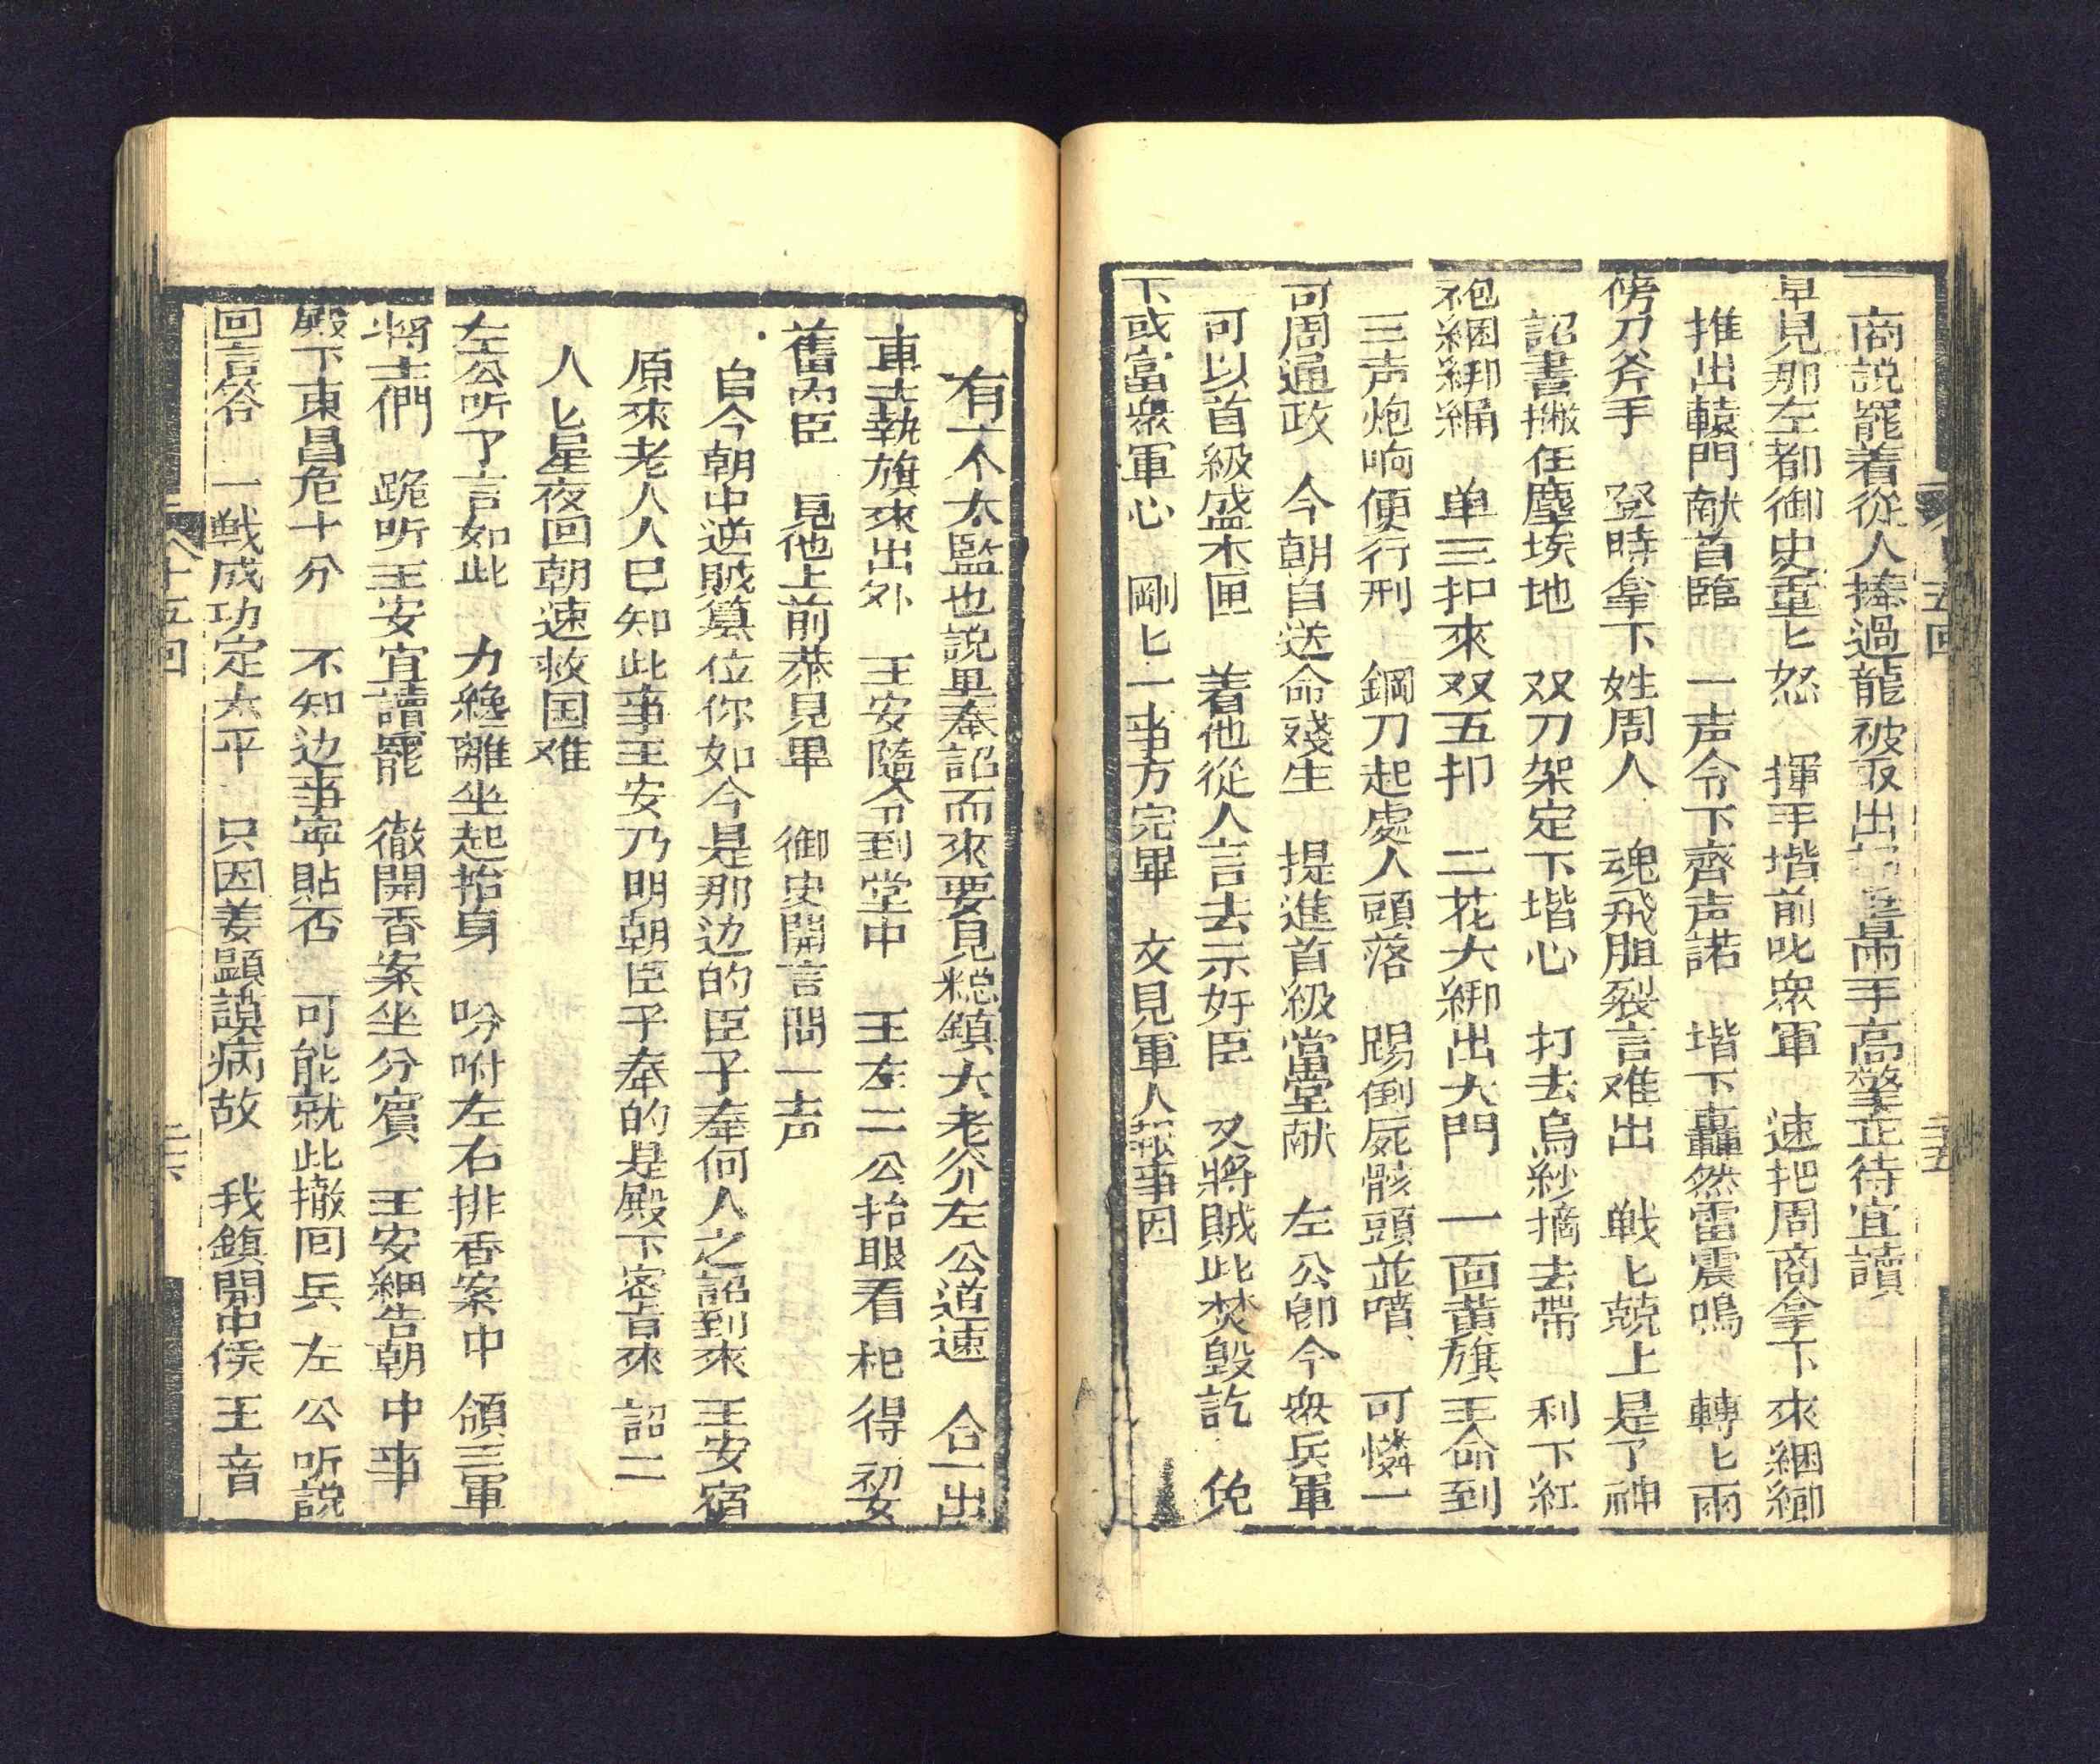 五回 三五
商説罷着從人捧過龍袱取出詔書昻兩手高擎正待宣讀
早見那左都御史重匕怒 揮手堦前叱衆軍 速把周商拿下來綑綁
推出轅門献首臨 一声令下齊声諾 堦下轟然雷震鳴 轉匕兩
傍刀斧手 登時拿下姓周人 魂飛胆裂言难出 戦匕兢上是了神
詔書撇在塵埃地 双刀架定下堦心 打去烏紗摘去帶 利下紅
袍綑綁綑 单三扣來双五扣 二花大綁出大門 一面黄旗王命到
三声炮响便行刑 鋼刀起處人頭落 踢倒屍骸頭並噴 可憐一
可周通政 今朝自送命殘生 提進首級當堂献 左公卽今衆兵軍
可以首級盛木匣 着他從人言去示奸臣 又將賊此焚毀訖 免
下或富衆軍心 剛匕一事方完畢 交見軍人報事因
有一个太監也説是奉詔而來要見總鎮大老爷左公道速 合一出
車去執旗來出外 王安隨令到堂中 王左二公抬眼看 杷得初安
舊内臣 見他上前恭見畢 御史開言問一声
自今朝中逆賊簒位你如今是那边的臣子奉何人之詔到來王安宿
原來老人人已知此事王安乃明朝臣子奉的是殿下密旨來 詔二
人匕星夜回朝速救国难
左公听了言如此 力纔離坐起抬身 吩咐左右排香案中 領三軍
將士們 跪听王安宣讀罷 徹開香案坐分賓 王安細告朝中事
殿下東昌危十分 不知边事寜貼否 可能就此撤回兵 左公听説
回言答 一戦成功定太平 只因姜顕謨病故 我鎮開中候王音
八十五回 三六